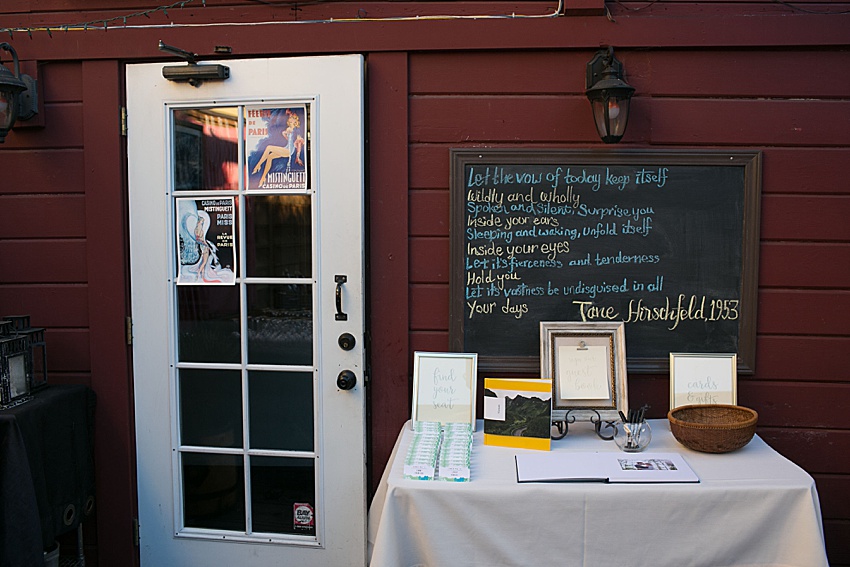 FÉERIE
DE
PARIS
MISTINGUETT
CASINO DE PARIS
CASINO DE PARIS
MISTINGUETT
PARIS
MISS
LA
REVUE
DE
PARIS
Let the vow of today keep itself
Wildly and wholly
Spoken and silent, Surprise you
Inside your ears
Sleeping and waking, unfold itself
Inside your eyes
Let its fierceness and tenderness
Hold you
Let its vastness be undisguised in all
Your days
Jane Hirschfeld, 1953
find
your
seat
cards
& gifts